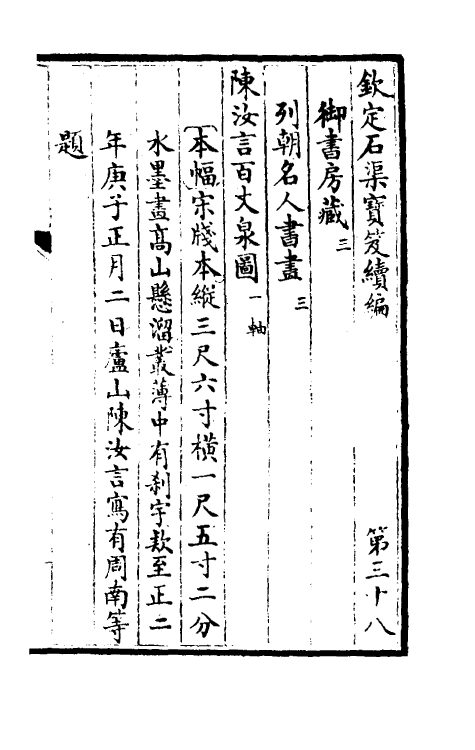 欽定石渠寶笈續編 第三十八
御書房藏三
列朝名人書畫三
陳汝言百丈泉圖一軸
〔本幅〕宋牋本縱三尺六寸橫一尺五寸二分
水墨畫高山懸溜叢薄中有刹宇款至正二
年庚子正月二日廬山陳汝言寫有周南等
題